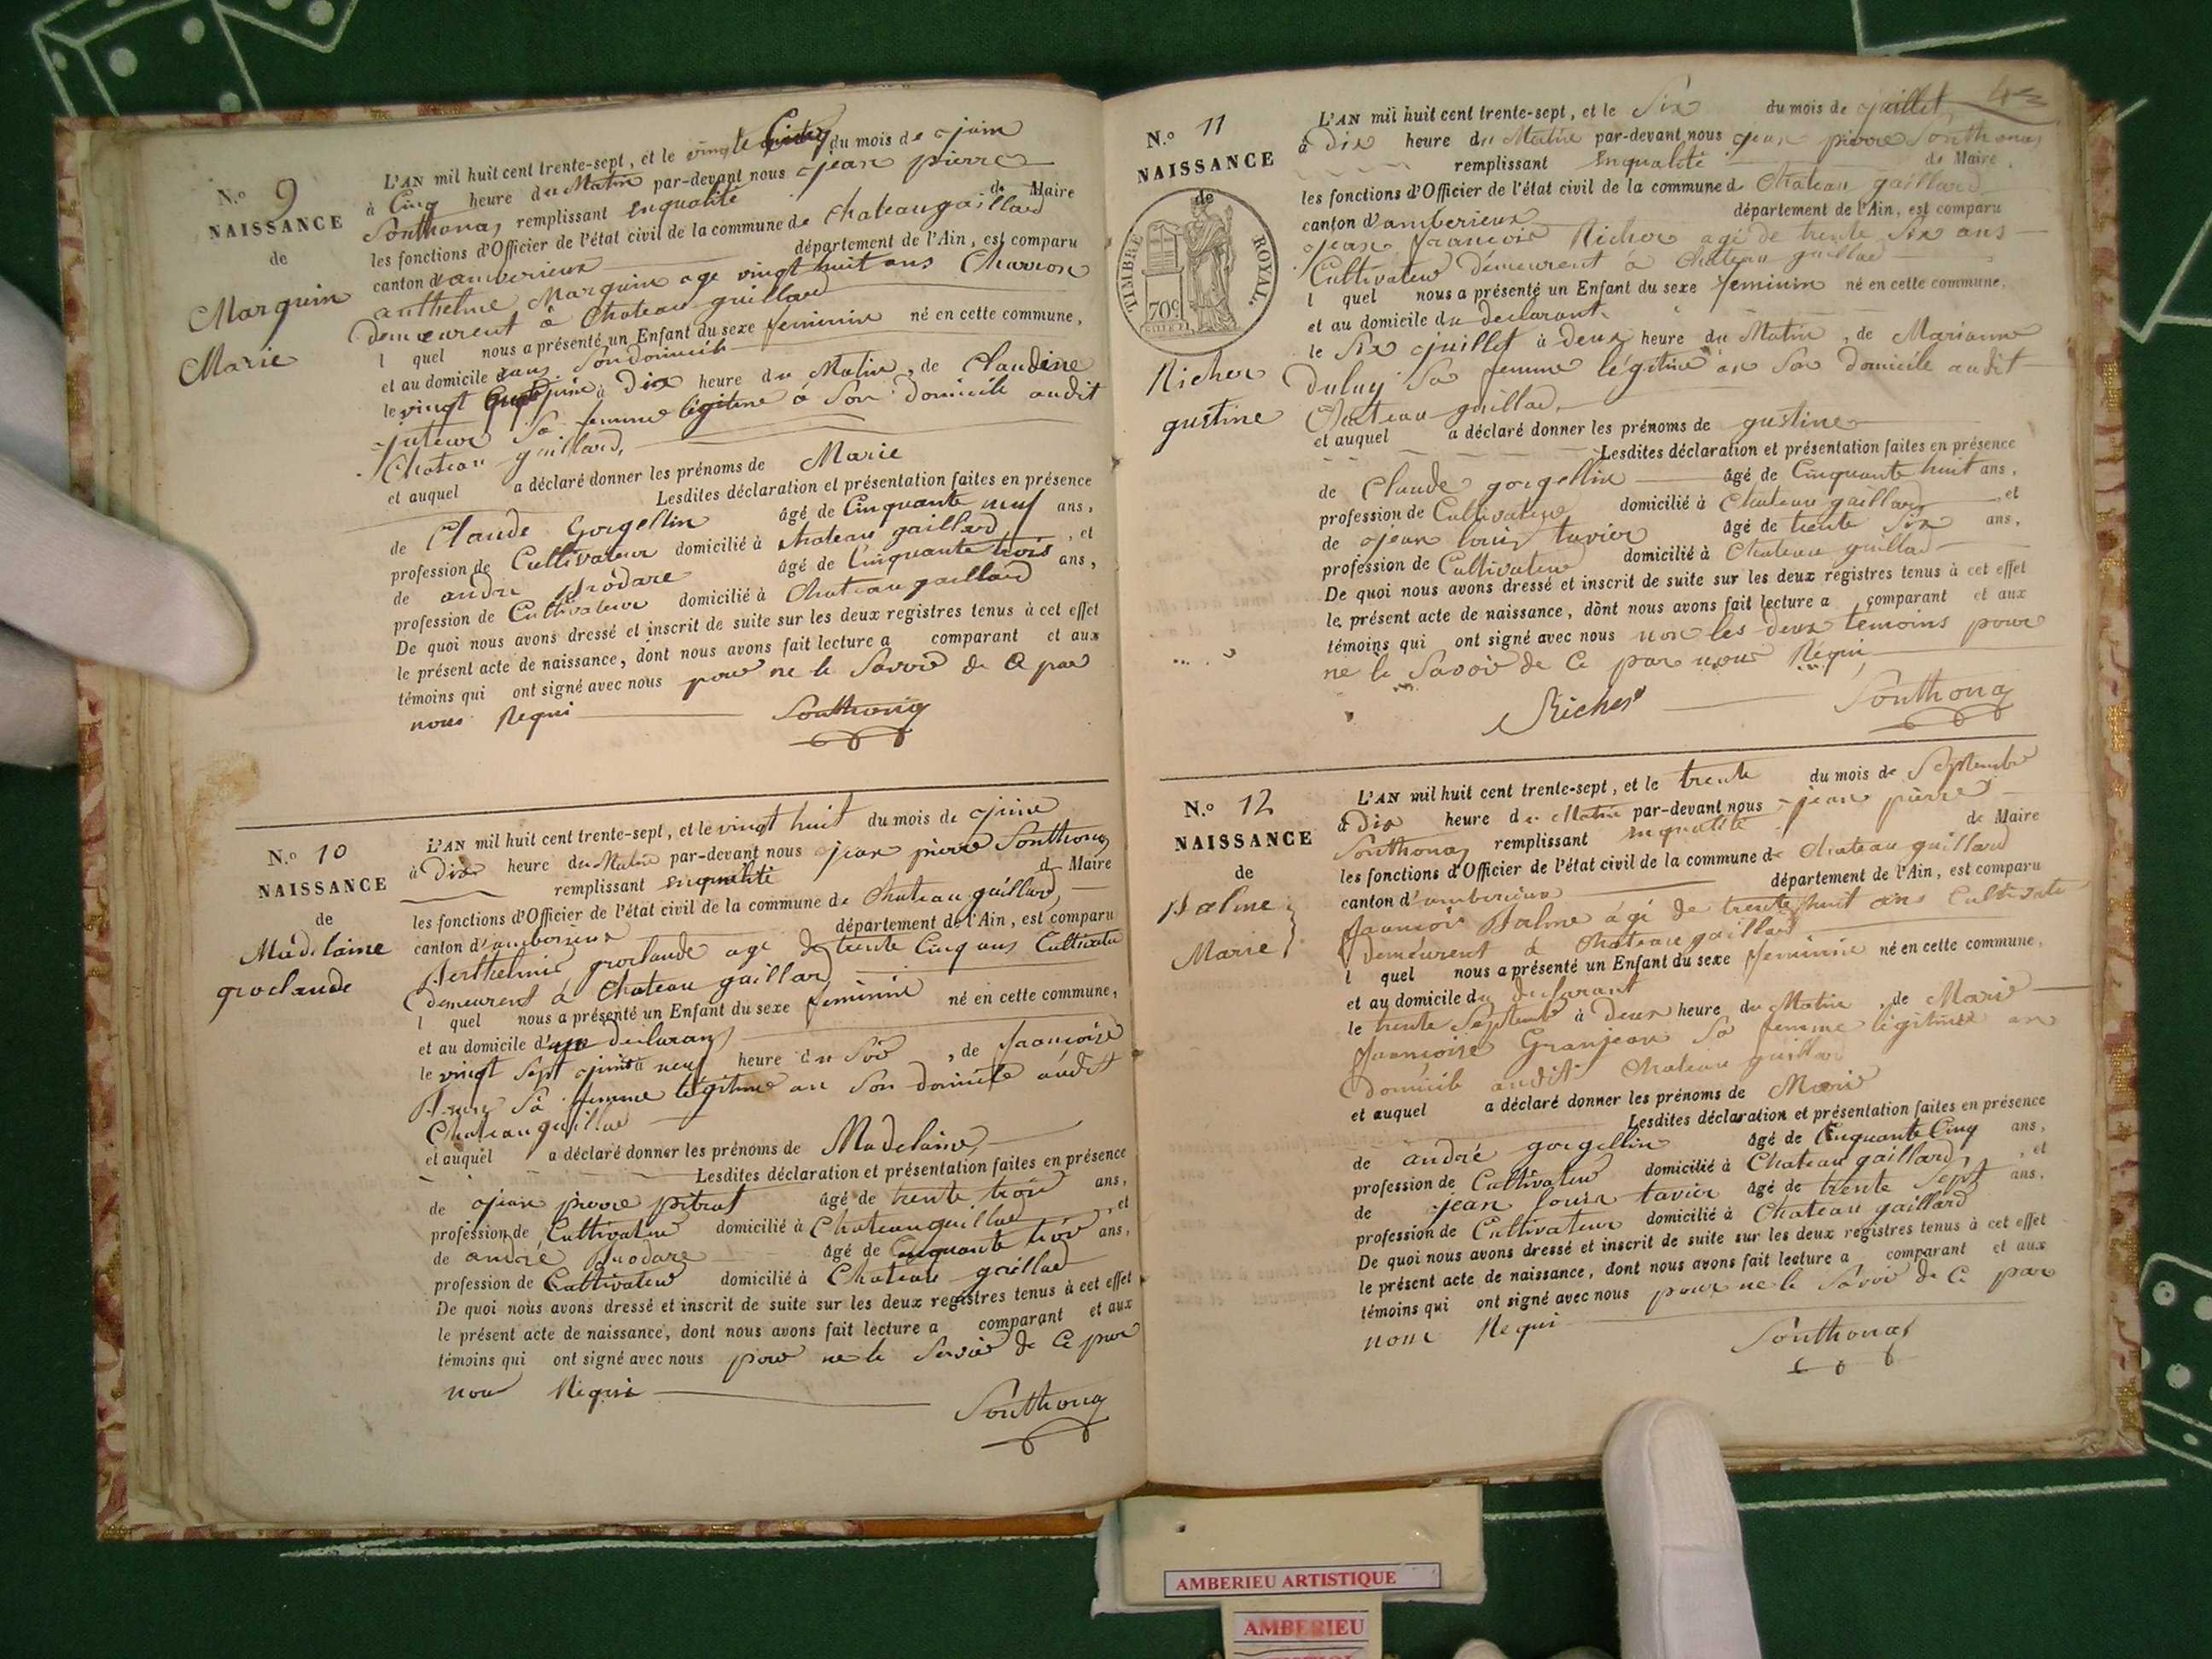 N.o 9
NAISSANCE
de
Marguin
Marie
L'AN mil huit cent trente-sept, et le vingt du mois de juin
à Cinq heure du Matin par-devant nous jean pierre
Sonthonas remplissant enqualité de Maire
les fonctions d'Officier de l'état civil de la commune de chateaugaillard
canton d'amberieux département de l'Ain, est comparu
anthelme Marguin age vingt huit ans Charron
demeurent à Chateau gaillard
l quel nous a présenté un Enfant du sexe feminin né en cette commune,
et au domicile dans son domicile
le vingt juin à Dix heure du Matin, de Claudine
sa femme légitime à Son domicile audit
Chateau gaillard,
et auquel a déclaré donner les prénoms de Marie
Lesdites déclaration et présentation faites en présence
de Claude Gorgellin âgé de Cinquante neuf ans,
profession de Cultivateur domicilié à chateau gaillard, et
de andré Brodare âgé de Cinquante trois ans,
profession de Cultivateur domicilié à Chateau gaillard
De quoi nous avons dressé et inscrit de suite sur les deux registres tenus à cet effet
le présent acte de naissance, dont nous avons fait lecture a comparant et aux
témoins qui ont signé avec nous pour ne le Savoir de Ce par
nous Requi
Sonthonas
N.o 10
NAISSANCE
de
Madelaine
groclaude
L'AN mil huit cent trente-sept, et le vingt huit du mois de juin
à Dix heure du Matin par-devant nous jean pierre Sonthonas
remplissant enqualité de Maire
les fonctions d'Officier de l'état civil de la commune de Chateau gaillard,
canton d'amberieux département de l'Ain, est comparu
Berthelmie groclaude age de trente Cinq ans Cultivateur
demeurent à Chateau gaillard
l quel nous a présenté un Enfant du sexe feminin né en cette commune,
et au domicile d declarant
le vingt Sept juin à neuf heure du Soir, de francoise
sa femme légitime an Son domicile audit
Chateau gaillard
et auquel a déclaré donner les prénoms de Madelaine
Lesdites déclaration et présentation faites en présence
de jean pierre pitrat âgé de trente trois ans,
profession de Cultivateur domicilié à Chateau gaillard, et
de andré Brodare âgé de Cinquante trois ans,
profession de Cultivateur domicilié à Chateau gaillard
De quoi nous avons dressé et inscrit de suite sur les deux registres tenus à cet effet
le présent acte de naissance, dont nous avons fait lecture a comparant et aux
témoins qui ont signé avec nous pour ne le Savoir de Ce par
nous Requi
Sonthonas
N.o 11
NAISSANCE
de
TIMBRE ROYAL.
70c
Richer
gustine
L'AN mil huit cent trente-sept, et le Six du mois de juillet,
à Dix heure du Matin par-devant nous jean pierre Sonthonas
remplissant enqualité de Maire
les fonctions d'Officier de l'état civil de la commune d Chateau gaillard
canton d'amberieux département de l'Ain, est comparu
jean francois Richer agé de trente Six ans
Cultivateur demeurent à Chateau gaillard
l quel nous a présenté un Enfant du sexe feminin né en cette commune,
et au domicile du declarant
le Six juillet à deux heure du Matin, de Marianne
Duluy Sa femme légitime an Son domicile audit
Chateau gaillard
et auquel a déclaré donner les prénoms de gustine
Lesdites déclaration et présentation faites en présence
de Claude gorgellin âgé de Cinquante huit ans,
profession de Cultivateur domicilié à Chateau gaillard, et
de jean louis tavier âgé de trente Six ans,
profession de Cultivateur domicilié à Chateau gaillard
De quoi nous avons dressé et inscrit de suite sur les deux registres tenus à cet effet
le présent acte de naissance, dont nous avons fait lecture a comparant et aux
témoins qui ont signé avec nous non les deux temoins pour
ne le Savoir de Ce par nous Requi
Richer Sonthonas
N.o 12
NAISSANCE
de
Balme
Marie
L'AN mil huit cent trente-sept, et le trente du mois de Septembre
à Dix heure du Matin par-devant nous jean pierre
Sonthonas remplissant enqualité de Maire
les fonctions d'Officier de l'état civil de la commune de Chateau gaillard
canton d'amberieux département de l'Ain, est comparu
francois Balme agé de trente huit ans Cultivateur
demeurent à Chateau gaillard
l quel nous a présenté un Enfant du sexe feminin né en cette commune,
et au domicile du declarant
le trente Septembre à Deux heure du Matin, de Marie
francoise Granjean Sa femme légitime an
Domicile audit Chateau gaillard
et auquel a déclaré donner les prénoms de Marie
Lesdites déclaration et présentation faites en présence
de andré gorgellin âgé de Cinquante Cinq ans,
profession de Cultivateur domicilié à Chateau gaillard, et
de jean louis tavier âgé de trente Sept ans,
profession de Cultivateur domicilié à Chateau gaillard
De quoi nous avons dressé et inscrit de suite sur les deux registres tenus à cet effet
le présent acte de naissance, dont nous avons fait lecture a comparant et aux
témoins qui ont signé avec nous pour ne le Savoir de Ce par
nous Requi
Sonthonas
AMBERIEU ARTISTIQUE
AMBERIEU